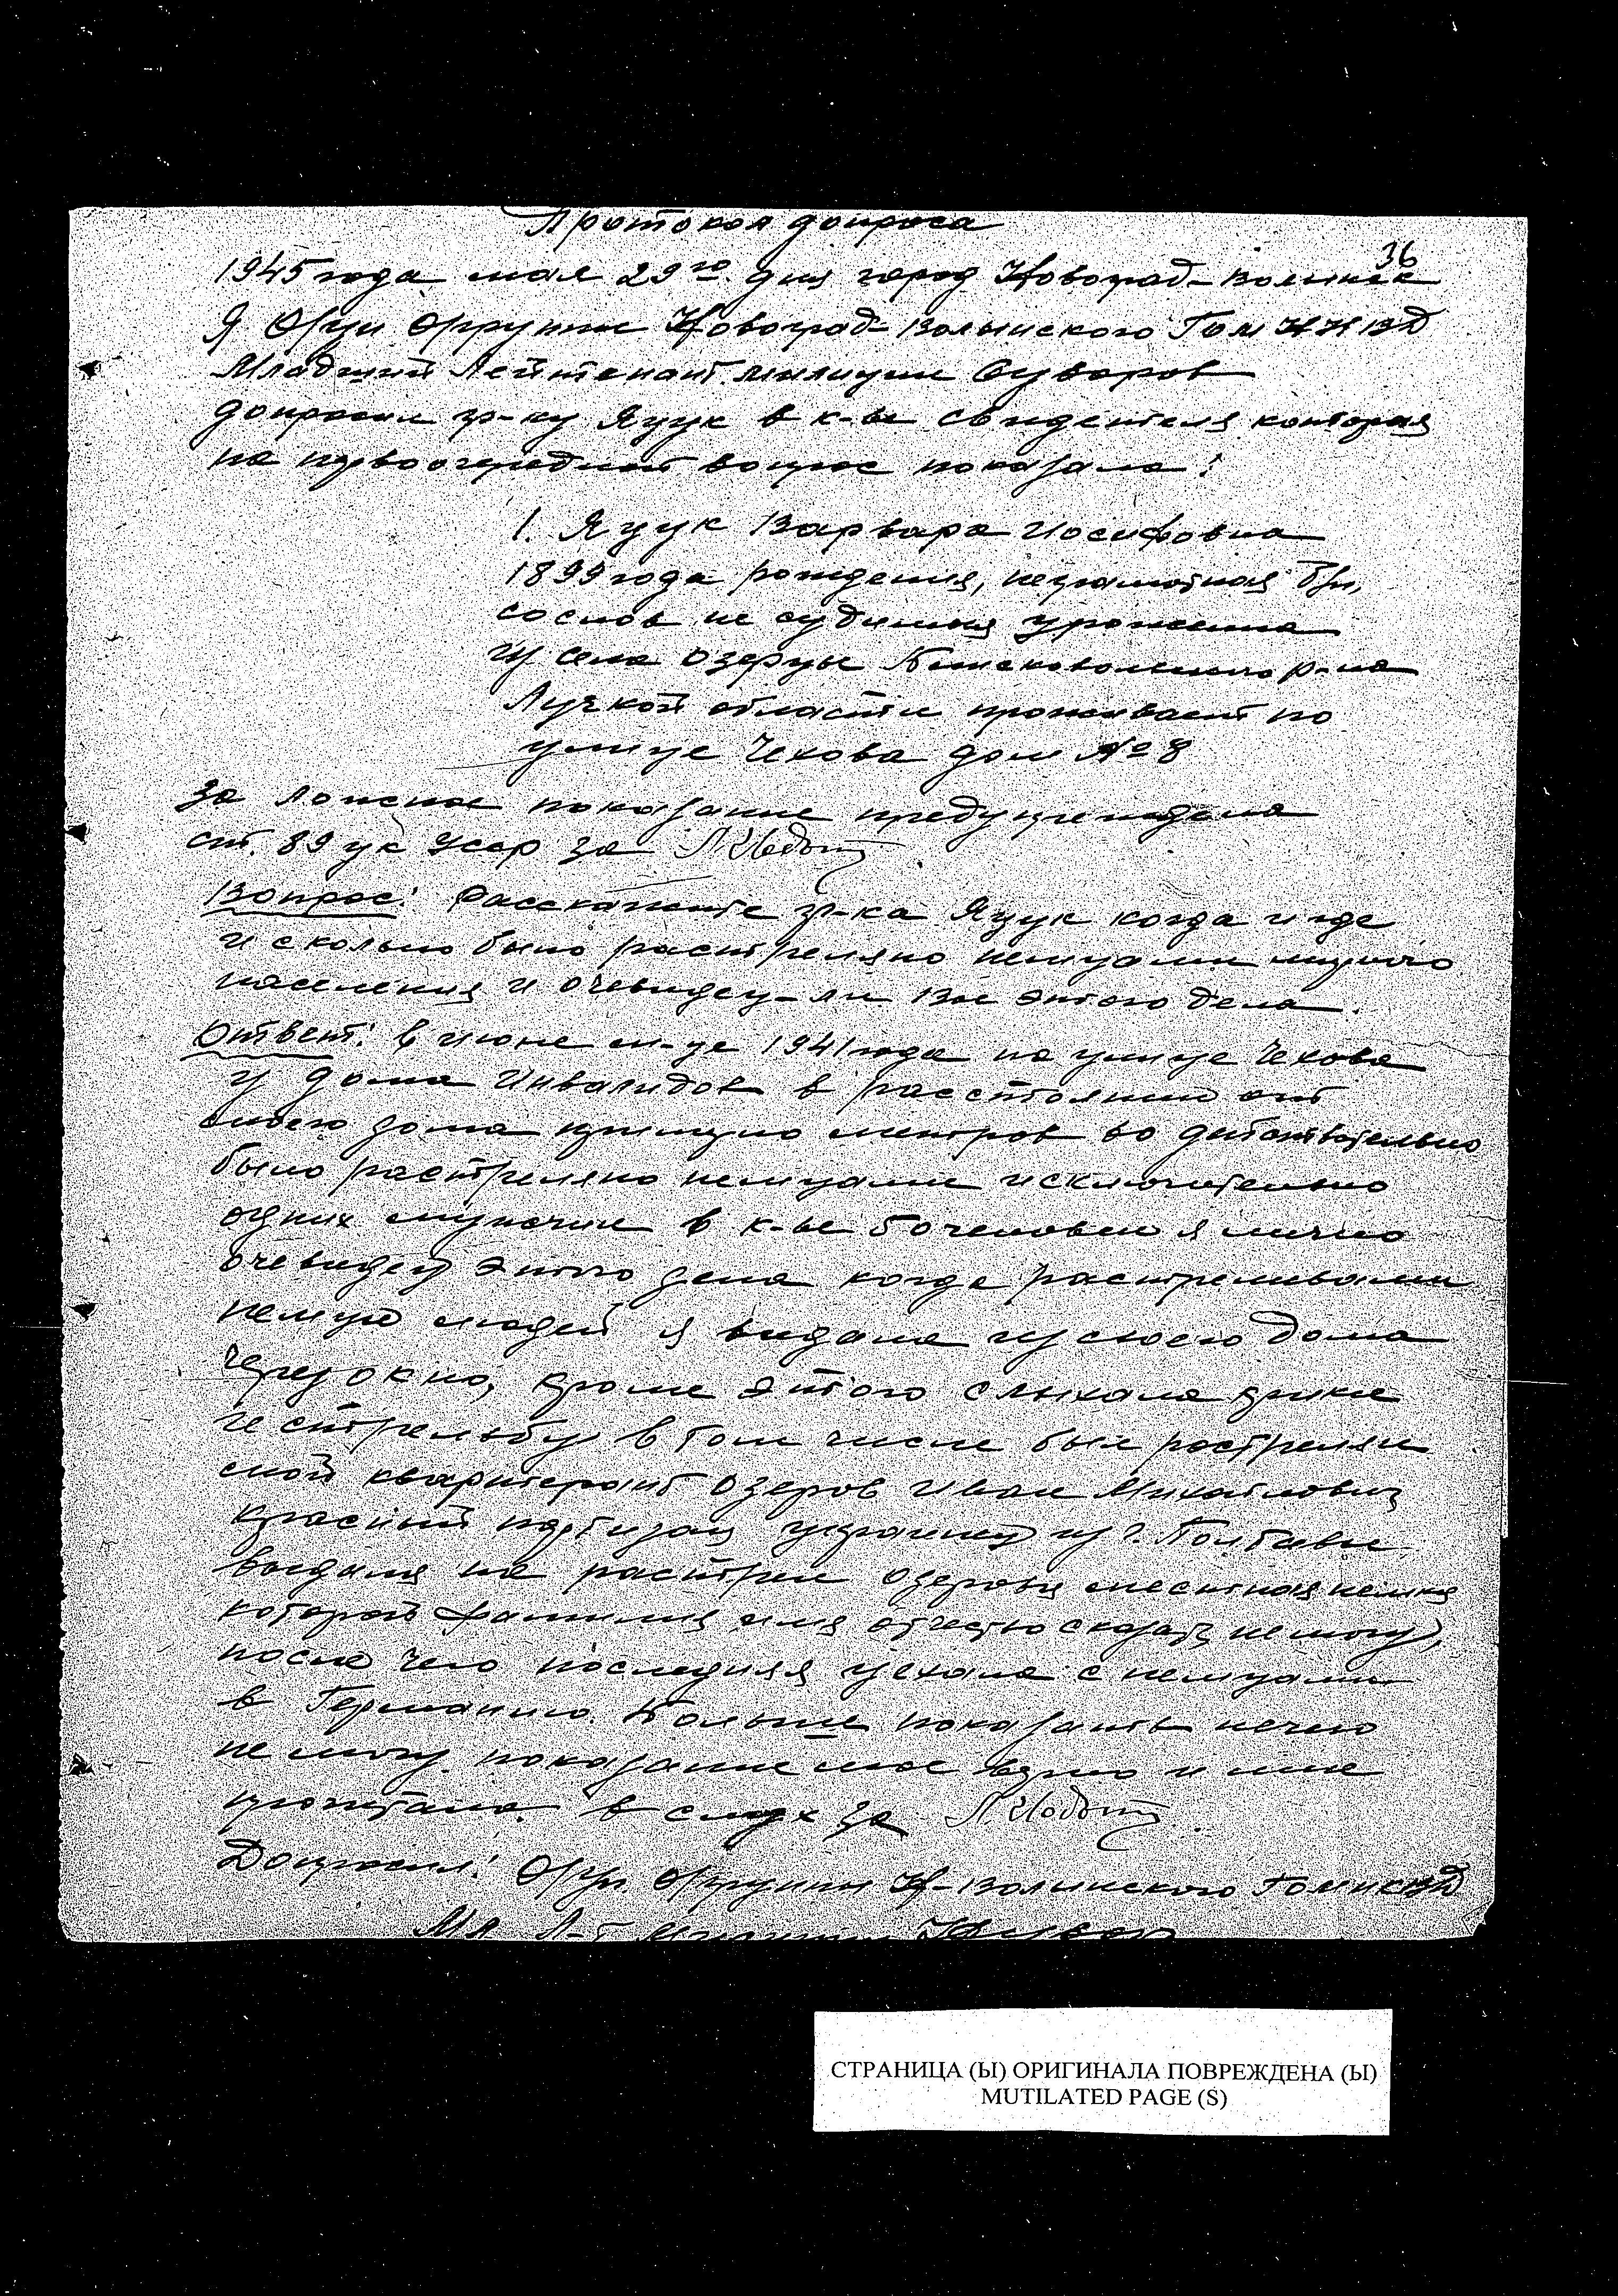 Протокол допроса
36
1945 года мая 29го дня город Новоград-Волынск
Я О/уп О/группы Новоград-Волынского Гом НКВД
Младший Лейтенант милиции Суворов
допросил гр-ку Яцук в к-ве свидетеля которая
на первоочередной вопрос показала:
1. Яцук Варвара Иосифовна
1899 года рождения, неграмотная Б/п,
не судимая уроженка
из села Озерцы р-на
Луцкой области проживает по
улице Чехова дом № 8
За ложное показание предупреждена
ст. 89 ук Усср за
Вопрос: Расскажите гр-ка Яцук когда и где
и сколько было растреляно немцами мирного
населения и очевидец-ли Вы этого дела.
Ответ: в июне м-це 1941 года по улице Чехова
у дома Инвалидов в расстоянии от
моего дома метров 50 действительно
было растреляно немцами исключительно
одних мужчин в к-ве 50 человек я лично
очевидец этого дела когда растреливали
немцы людей я видала из своего дома
через окно, кроме этого слыхала крики
и стрельбу в том числе был растрелян
мой квартерант Озеров Иван Михайлович
красный партизан из г. Полтавы
выдала на растрел Озерова местная немка
которой фамилия имя отчество сказать не могу,
после чего последняя уехала с немцами
в Германию. Больше показать нечего
не могу. показание мое верно и мне
прочитано в слух за
Допросил: О/уп. О/группы Н-Волынского Гом НКВД
Мл. Л-т милиции
СТРАНИЦА (Ы) ОРИГИНАЛА ПОВРЕЖДЕНА (Ы)
MUTILATED PAGE (S)